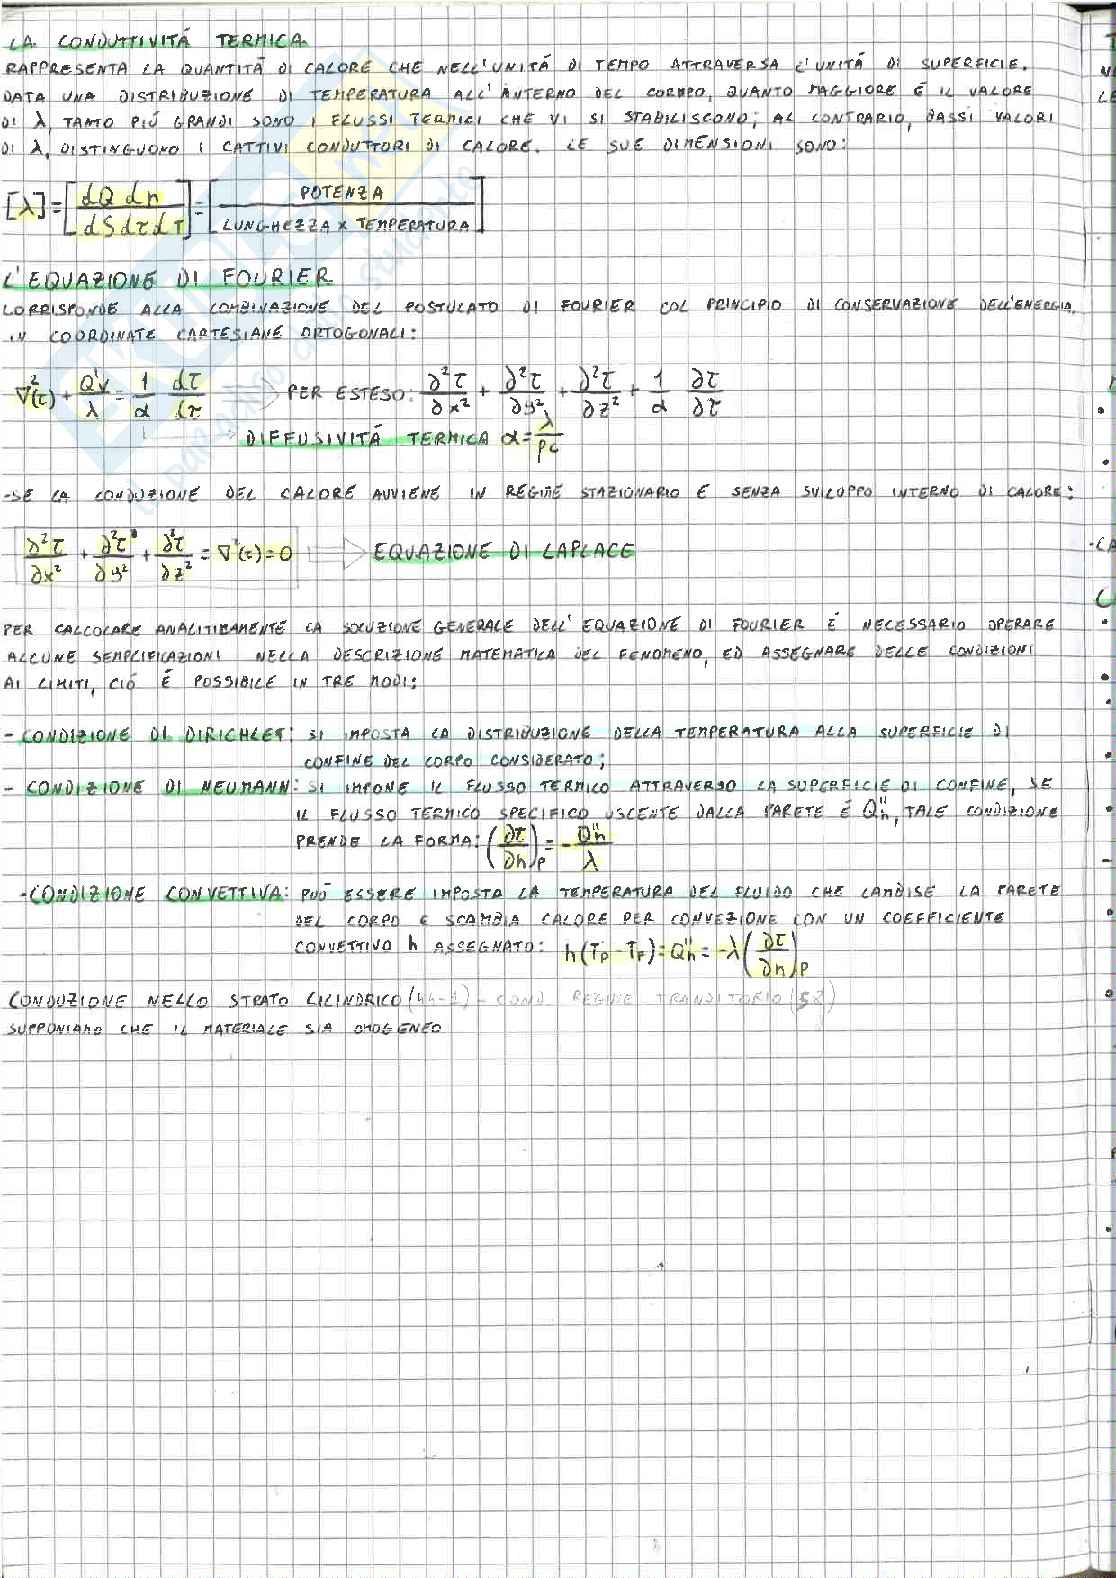 LA CONDUTTIVITÁ TERMICA
RAPPRESENTA LA QUANTITÁ DI CALORE CHE NELL'UNITÁ DI TEMPO ATTRAVERSA L'UNITÁ DI SUPERFICIE.
DATA UNA DISTRIBUZIONE DI TEMPERATURA ALL'INTERNO DEL CORPO, QUANTO MAGGIORE É IL VALORE
DI λ, TANTO PIÚ GRANDI SONO I FLUSSI TERMICI CHE VI SI STABILISCONO; AL CONTRARIO, BASSI VALORI
DI λ, DISTINGUONO I CATTIVI CONDUTTORI DI CALORE. LE SUE DIMENSIONI SONO:
[λ]=[dQ dn / dS dτ dT]=[POTENZA / LUNGHEZZA x TEMPERATURA]
L'EQUAZIONE DI FOURIER
CORRISPONDE ALLA COMBINAZIONE DEL POSTULATO DI FOURIER COL PRINCIPIO DI CONSERVAZIONE DELL'ENERGIA.
IN COORDINATE CARTESIANE ORTOGONALI:
∇²(τ) + Q'v/λ = 1/α dτ/dτ PER ESTESO: ∂²τ/∂x² + ∂²τ/∂y² + ∂²τ/∂z² + 1/α ∂τ/∂τ
DIFFUSIVITÁ TERMICA α=λ/ρc
-SE LA CONDUZIONE DEL CALORE AVVIENE IN REGIME STAZIONARIO E SENZA SVILUPPO INTERNO DI CALORE:
∂²τ/∂x² + ∂²τ/∂y² + ∂²τ/∂z² = ∇²(τ)=0 EQUAZIONE DI LAPLACE
PER CALCOLARE ANALITICAMENTE LA SOLUZIONE GENERALE DELL'EQUAZIONE DI FOURIER É NECESSARIO OPERARE
ALCUNE SEMPLIFICAZIONI NELLA DESCRIZIONE MATEMATICA DEL FENOMENO, ED ASSEGNARE DELLE CONDIZIONI
AI LIMITI, CIÓ É POSSIBILE IN TRE MODI:
- CONDIZIONE DI DIRICHLET: SI IMPOSTA LA DISTRIBUZIONE DELLA TEMPERATURA ALLA SUPERFICIE DI
CONFINE DEL CORPO CONSIDERATO;
- CONDIZIONE DI NEUMANN: SI IMPONE IL FLUSSO TERMICO ATTRAVERSO LA SUPERFICIE DI CONFINE, SE
IL FLUSSO TERMICO SPECIFICO USCENTE DALLA PARETE É Q"n, TALE CONDIZIONE
PRENDE LA FORMA: (∂τ/∂n)P = - Q"n/λ
-CONDIZIONE CONVETTIVA: PUÓ ESSERE IMPOSTA LA TEMPERATURA DEL FLUIDO CHE LAMBISE LA PARETE
DEL CORPO E SCAMBIA CALORE PER CONVEZIONE CON UN COEFFICIENTE
CONVETTIVO h ASSEGNATO: h(TP-TF)=Q"n=-λ(∂τ/∂n)P
CONDUZIONE NELLO STRATO CILINDRICO (44-1) - COND. REGIME TRANSITORIO (58)
SUPPONIAMO CHE IL MATERIALE SIA OMOGENEO